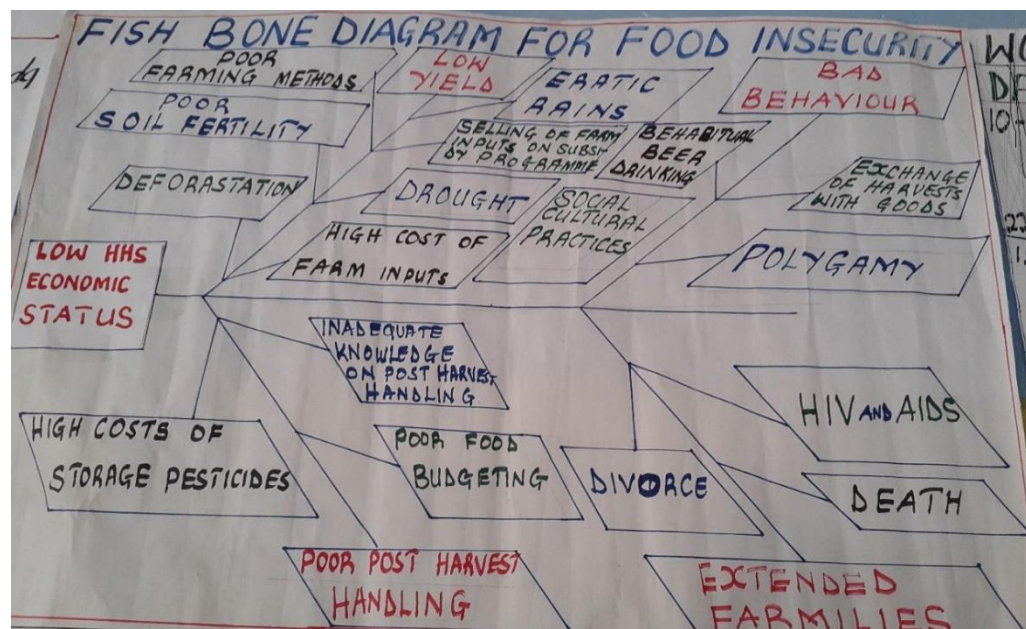 FISH BONE DIAGRAM FOR FOOD INSECURITY
POOR
FARMING METHODS
LOW
YIELD
ERATIC
RAINS
BAD
BEHAVIOUR
POOR
SOIL FERTILITY
SELLING OF FARM
INPUTS ON SUBSI
DY PROGRAMME
BEHABITUAL
BEER
DRINKING
DEFORASTATION
DROUGHT
SOCIAL
CULTURAL
PRACTICES
EXCHANGE
OF HARVESTS
WITH GOODS
HIGH COST OF
FARM INPUTS
POLYGAMY
LOW HHS
ECONOMIC
STATUS
INADEQUATE
KNOWLEDGE
ON POST HARVEST
HANDLING
HIGH COSTS OF
STORAGE PESTICIDES
POOR FOOD
BUDGETING
DIVORCE
HIV AND AIDS
DEATH
POOR POST HARVEST
HANDLING
EXTENDED
FARMILIES
10